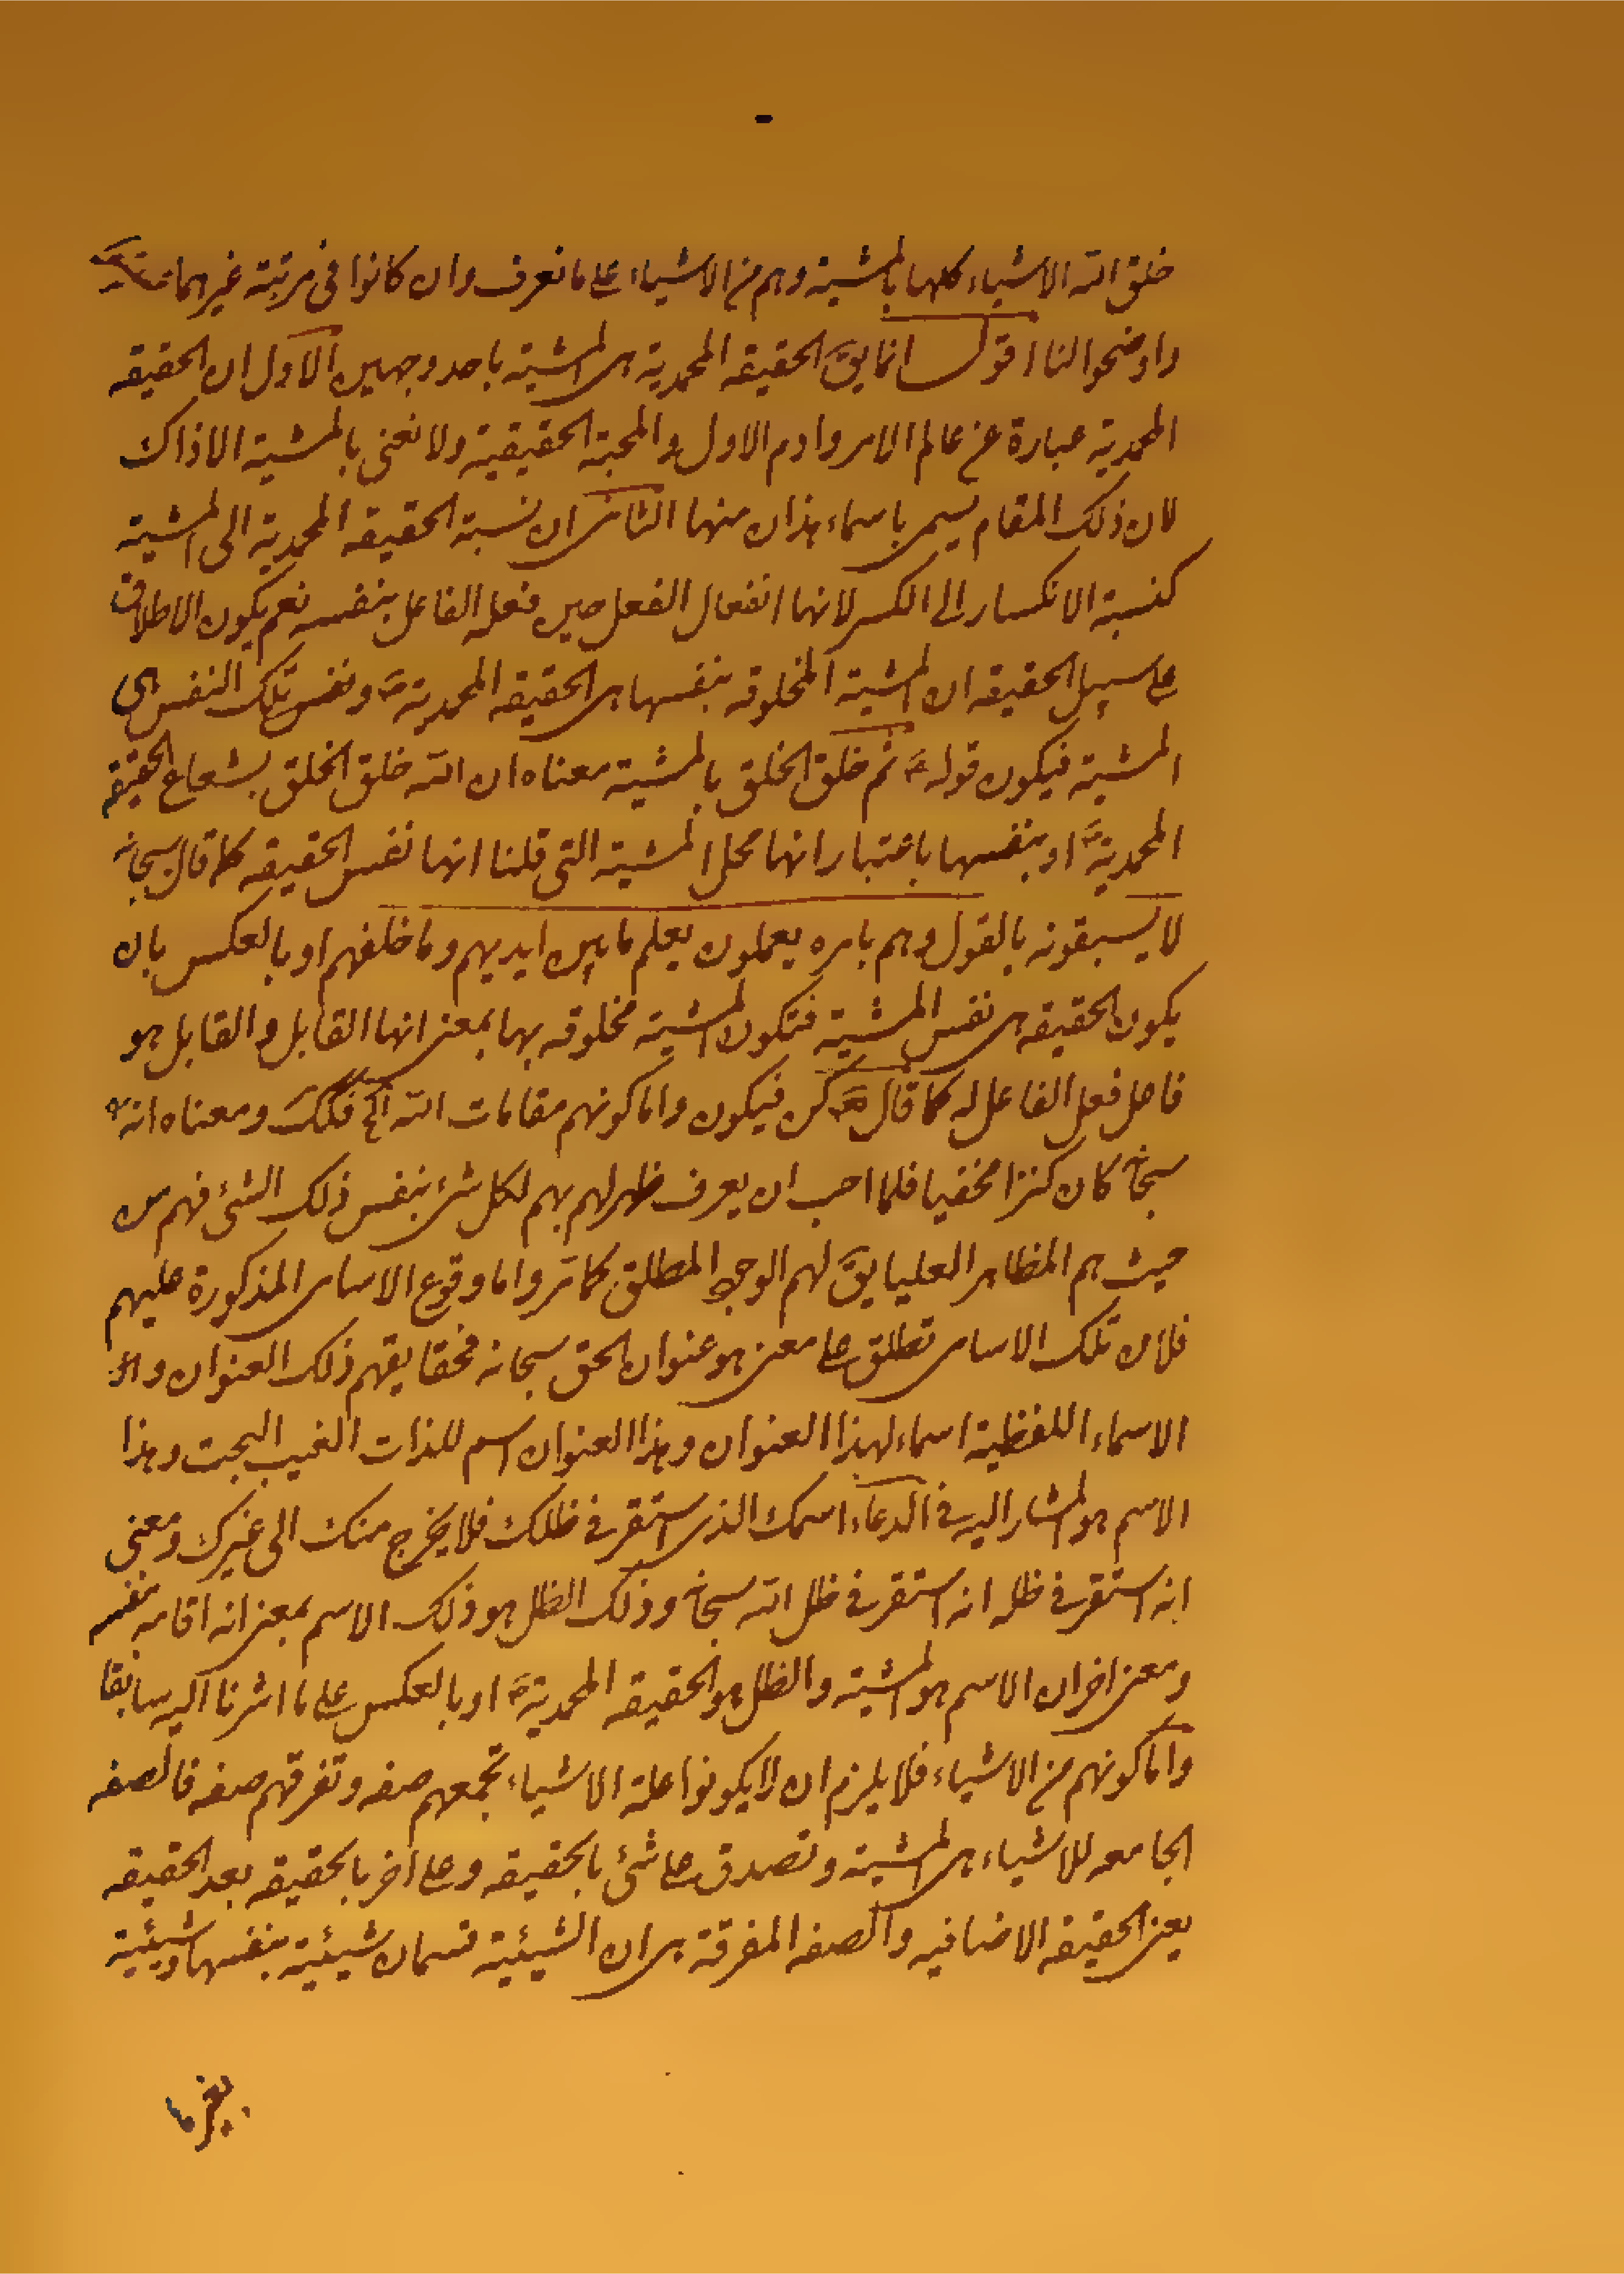 خلق الله الاشياء كلها بالمشية وهم من الاشياء على ما نعرف وان كانوا فى مرتبة غيرهما
واوضحوا لنا اقول انما يق الحقيقه المحمدية هى المشية باحد وجهين الاول ان الحقيقه
المحمدية عبارة عن عالم الامر وادم الاول والمحبة الحقيقية ولا نعنى بالمشية الا ذاك
لان ذلك المقام يسمى باسماء هذان منها الثانى ان نسبة الحقيقه المحمدية الى المشية
كنسبة الانكسار الى الكسر لانها انفعال الفعل حين فعله الفاعل بنفسه نعم يكون الاطلاق
على سبيل الحقيقه ان المشية المخلوقه بنفسها هى الحقيقه المحمدية ص ونفس تلك النفس هى
المشية فيكون قوله ع ثم خلق الخلق بالمشية معناه ان الله خلق الخلق بشعاع الحقيقه
المحمدية ص او بنفسها باعتبار انها محل المشية التى قلنا انها نفس الحقيقه كما قال سبحانه
لا يسبقونه بالقول وهم بامره يعملون يعلم ما بين ايديهم وما خلفهم او بالعكس بان
يكون الحقيقه هى نفس المشية فتكون المشية مخلوقه بها بمعنى انها القابل والقابل هو
فاعل فعل الفاعل له كما قال تعالى كن فيكون واما كونهم مقامات الله الخ فكك ومعناه انه
سبحانه كان كنزا مخفيا فلما احب ان يعرف ظهر لهم بهم لكل شئ بنفس ذلك الشئ فهم من
حيث هم المظاهر العليا يق لهم الوجه المطلق كما مر واما وقوع الاسامى المذكورة عليهم
فلان تلك الاسامى تطلق على معنى هو عنوان الحق سبحانه فحقايقهم ذلك العنوان و
الاسماء اللفظية اسماء لهذا العنوان وهذا العنوان اسم للذات الغيب البحت وهذا
الاسم هو المشار اليه فى الدعاء اسمك الذى استقر فى ظلك فلا يخرج منك الى غيرك ومعنى
انه استقر فى ظله انه استقر فى ظل الله سبحانه وذلك الظل هو ذلك الاسم بمعنى انه اقامه بنفسه
ومعنى اخر ان الاسم هو المشية والظل هو الحقيقه المحمدية ص او بالعكس على ما اشرنا اليه سابقا
واما كونهم من الاشياء فلا يلزم ان لا يكونوا علة الاشياء تجمعهم صفه وتفرقهم صفه فالصفه
الجامعه للاشياء هى المشية وتصدق على شئ بالحقيقه وعلى اخر بالحقيقه بعد الحقيقه
يعنى الحقيقه الاضافيه والصفه المفرقة هى ان الشيئية قسمان شيئية بنفسها وشيئية
بغيرها